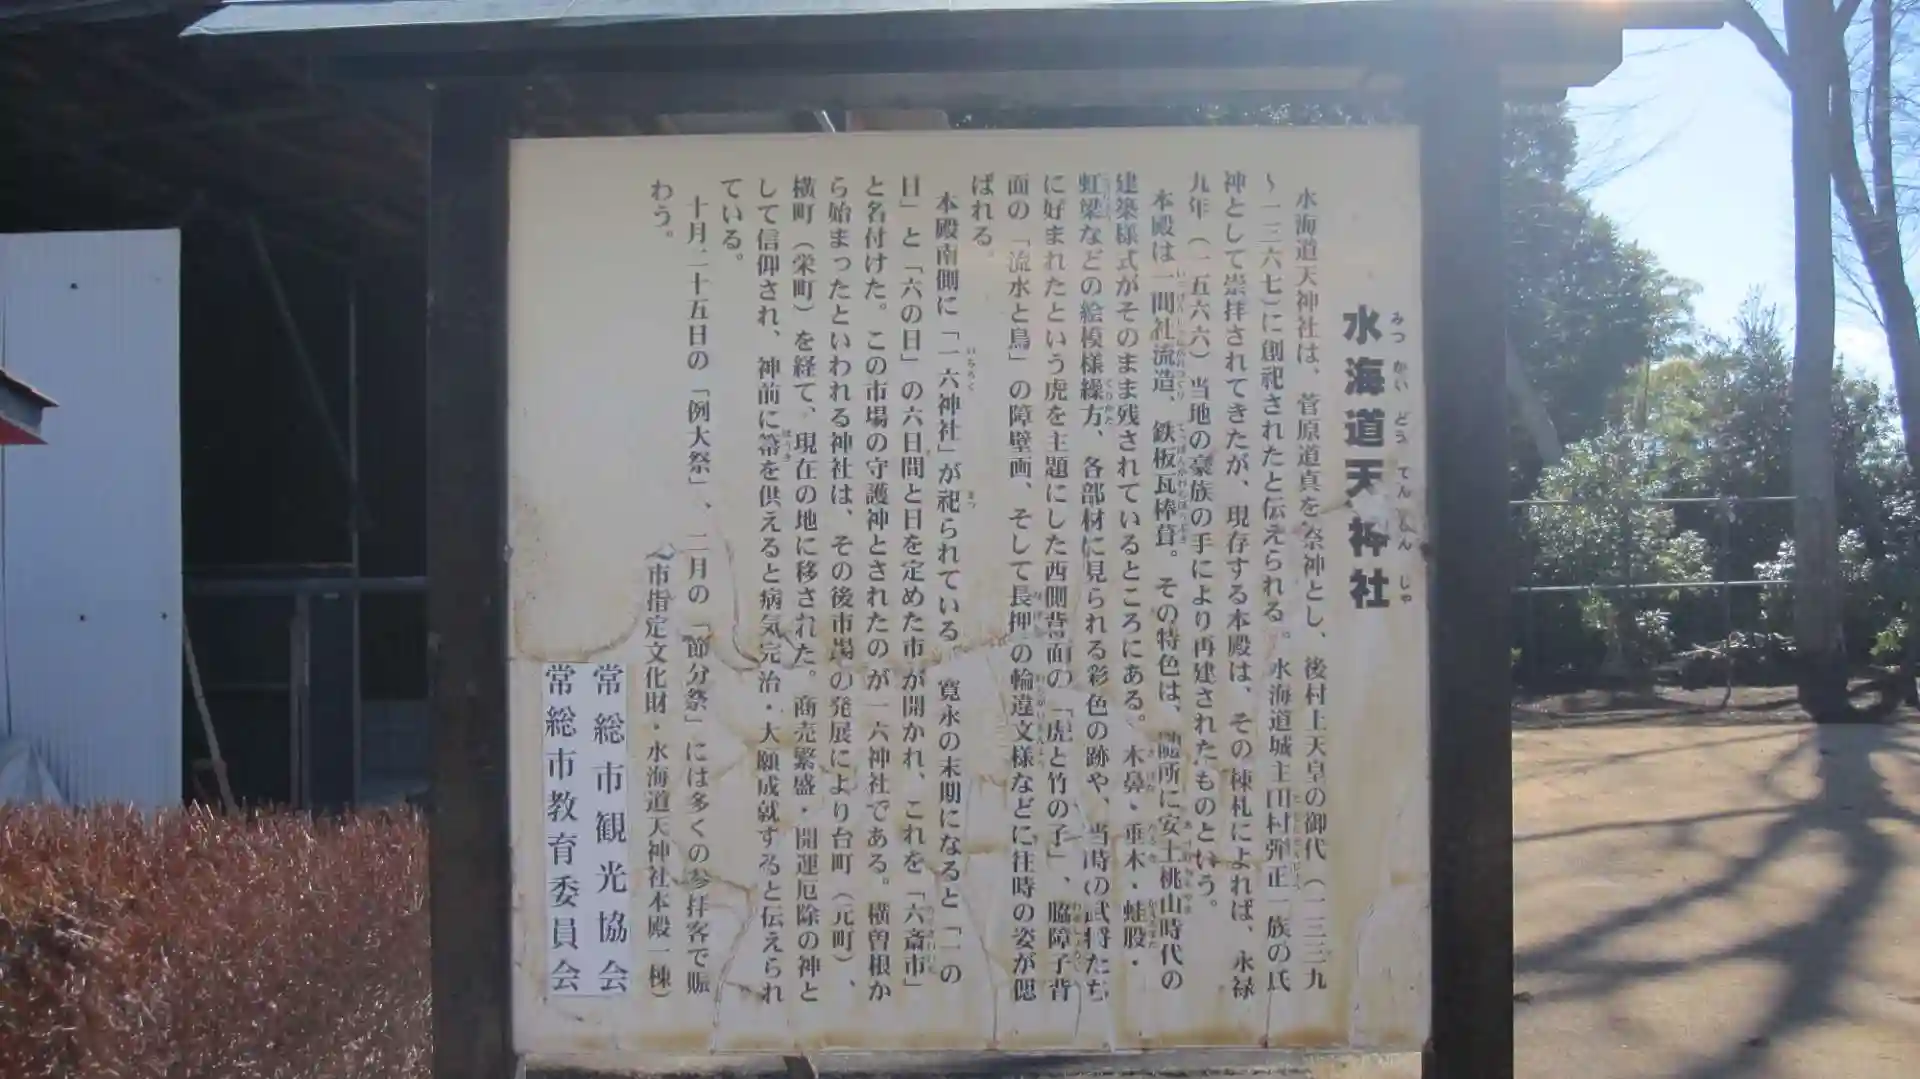 水海道天神社
みつかいどうてんじんじゃ
水海道天神社は、菅原道真を祭神とし、後村上天皇の御代（一三三九
～一三六七）に創祀されたと伝えられる。水海道城主田村弾正一族の氏
神として崇拝されてきたが、現存する本殿は、その棟札によれば、永禄
九年（一五六六）当地の豪族の手により再建されたものという。
本殿は一間社流造、鉄板瓦棒葺。その特色は、随所に安土桃山時代の
建築様式がそのまま残されているところにある。木鼻・垂木・蛙股・
虹梁などの絵模様繰方、各部材に見られる彩色の跡や、当時の武将たち
に好まれたという虎を主題にした西側背面の「虎と竹の子」、脇障子背
面の「流水と鳥」の障壁画、そして長押の輪違文様などに往時の姿が偲
ばれる。
本殿南側に「一六神社」が祀られている。寛永の末期になると「一の
日」と「六の日」の六日間と日を定めた市が開かれ、これを「六斎市」
と名付けた。この市場の守護神とされたのが一六神社である。横曽根か
ら始まったといわれる神社は、その後市場の発展により台町（元町）、
横町（栄町）を経て、現在の地に移された。商売繁盛・開運厄除の神と
して信仰され、神前に箒を供えると病気完治・大願成就すると伝えられ
ている。
十月二十五日の「例大祭」、二月の「節分祭」には多くの参拝客で賑
わう。
（市指定文化財・水海道天神社本殿一棟）
常総市観光協会
常総市教育委員会